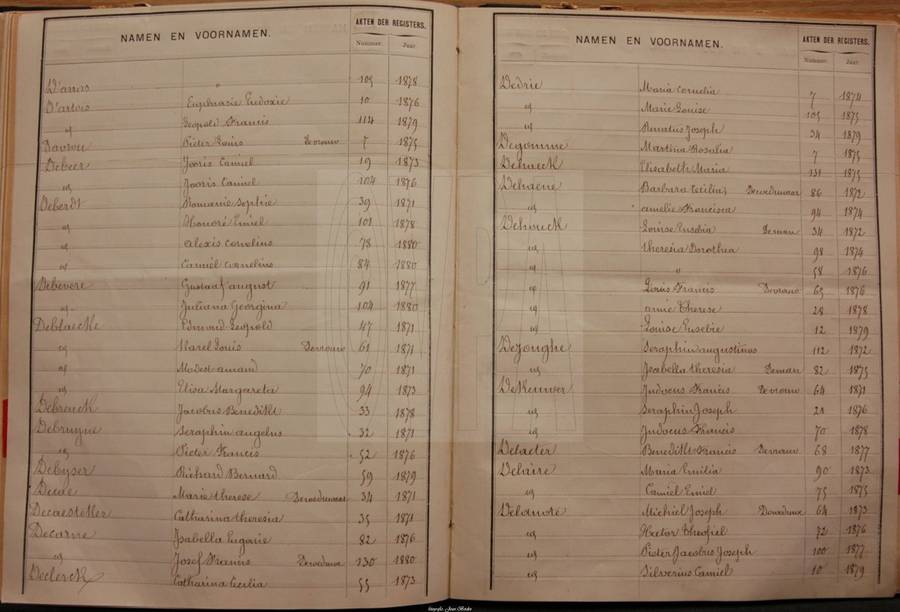 NAMEN EN VOORNAMEN. AKTEN DER REGISTERS.
Nummer. Jaar.
D'arras " 105 1878
D'artois Euphrasie Eudoxie 10 1876
id Leopold Francis 114 1879
Pieter Louis De vrouw 7 1875
Debeer Jooris Camiel 19 1873
id Jooris Camiel 104 1876
Deberdt Romanie Sophie 39 1871
id Honoré Emiel 101 1878
id Alexis Cornelius 78 1880
id Camiel Cornelius 84 1880
Debevere Gustaaf August 91 1877
id Juliana Georgina 104 1880
Deblaecke Edmond Leopold 47 1871
id Karel Louis De vrouw 61 1871
id Modest Amand 70 1871
id Elisa Margareta 94 1873
Debrauck Jacobus Benedikt 33 1878
Debruyne Seraphin Angelus 32 1871
id Pieter Francis 52 1876
Debyser Richard Bernard 59 1879
Decae Marie Therese De weduwaar 34 1871
Decaesteker Catharina Theresia 35 1871
Decarne Isabella Eugenie 82 1876
id Josef Francis De weduwe 130 1880
Declerck Catharina Cecilia 55 1873
NAMEN EN VOORNAMEN. AKTEN DER REGISTERS.
Nummer. Jaar.
Dedrie Maria Cornelia 7 1874
id Marie Louise 105 1875
id Renatus Joseph 34 1879
Degomme Martina Rosalia 7 1875
Dehaeck Elisabeth Maria 131 1875
Dehaene Barbara Cecilia De weduwaar 86 1872
id Amelie Francisca 94 1874
Dehouck Louise Eusebia De man 34 1872
id Theresia Dorothea 98 1874
id " 58 1876
id Louis Francis De vrouw 65 1876
id Anne Therese 28 1878
id Louise Eusebie 12 1879
Dejonghe Seraphin Augustinus 112 1872
id Isabella Theresia De man 82 1875
Dekeuwer Judocus Francis De vrouw 64 1871
id Seraphin Joseph 21 1876
id Judocus Francis 70 1878
Delaeter Benedikt Francis De vrouw 68 1877
Delaire Maria Emilia 90 1873
id Camiel Emiel 75 1875
Delanote Michiel Joseph De weduwe 64 1873
id Hector Theofiel 72 1876
id Pieter Jacobus Joseph 100 1877
id Silverius Camiel 10 1879